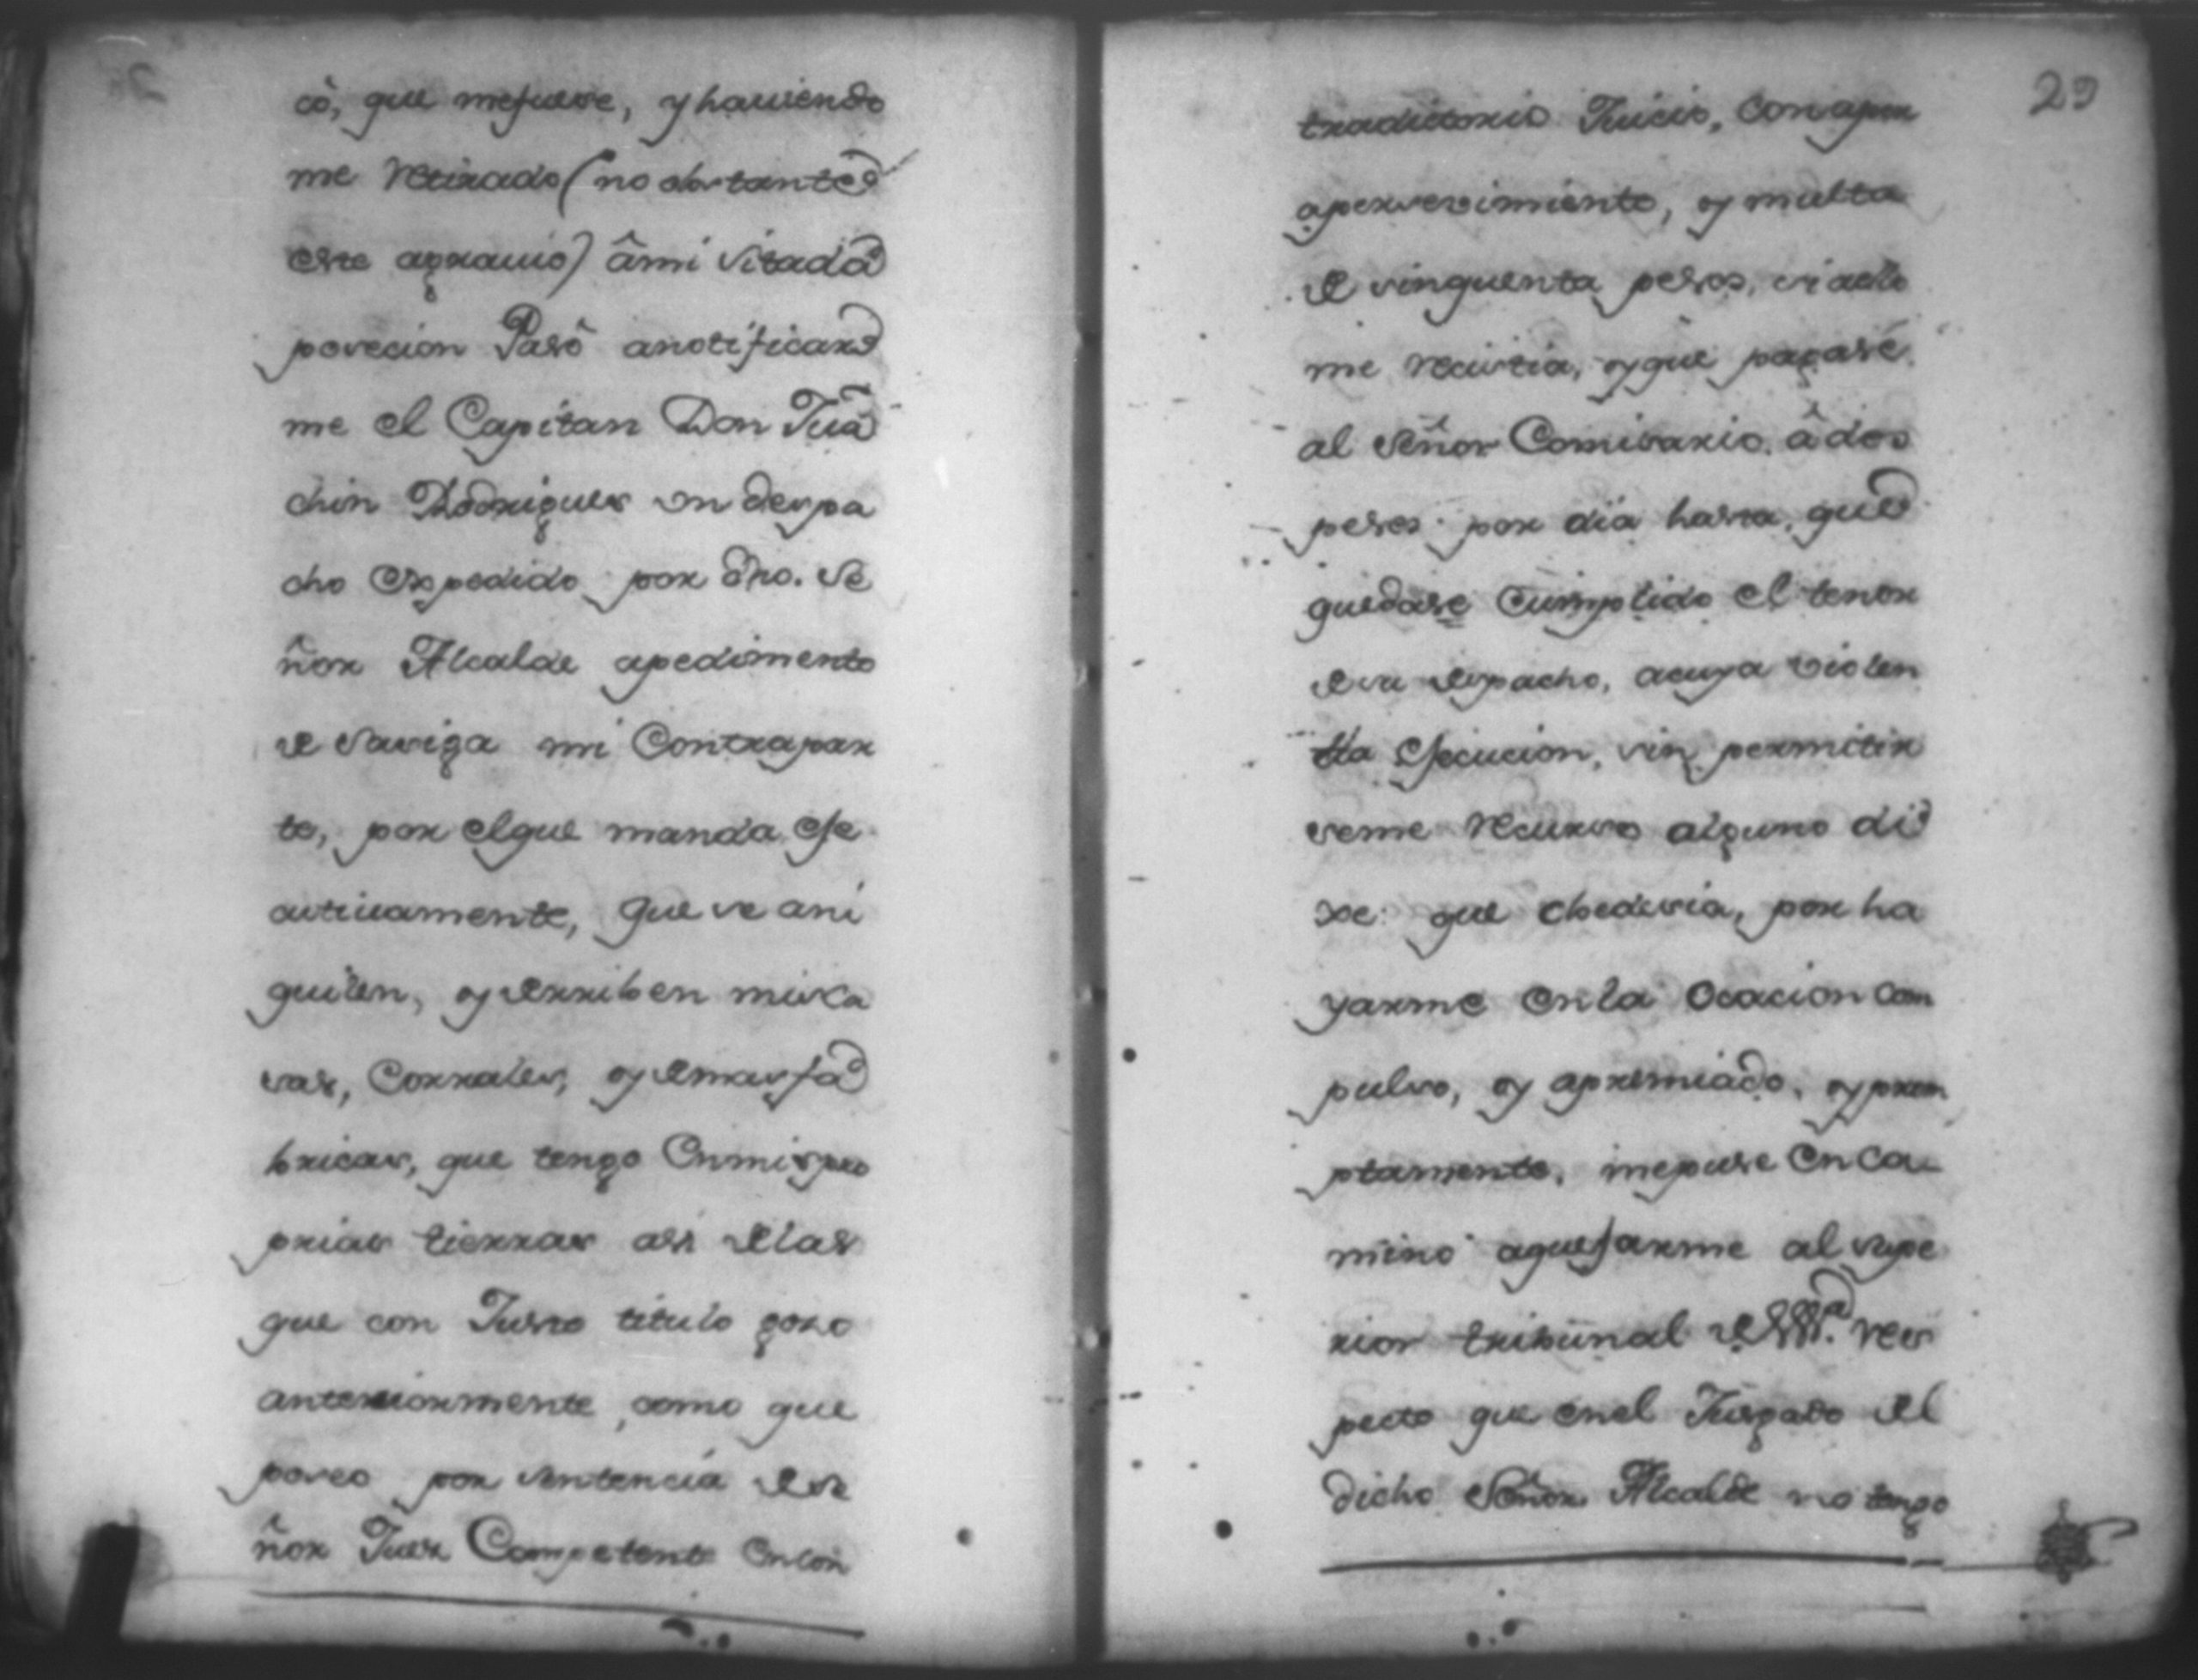 cò, que mefuese, y haviendo
me retirado (no obstante
este agravio) â mi sitada
posecion Pasô anotificar
me el Capitan Don Juã
chin Rodrigues un despa
cho expedido por dho. Se
ñor Alcalde apedimento
de Saviga mi Contrapar
te, por elque manda eje
cutivamente, que se ani
quilen, y derriben mis ca
sas, Corrales, y demas fa
bricas, que tengo en mis pro
prias tierras asi de las
que con Justo titulo gozo
anteriormente, como que
poseo por sentencia de se
ñor Juez Competente en con
29
tradictorio Juicio, con aper
apersevimiento, y multa
de sinquenta pesos, si aello
me resistia, y que pagase
al Señor Comisario â dos
pesos por dia hasta, que
quedase Cumplido el tenor
de su despacho, acuya violen
tta ejecucion, sin permitir
seme recurso alguno di
xe que obedesia, por ha
yarme en la ocacion com
pulso, y apremiado, y prom
ptamente, mepuse en ca
mino aquejarme al supe
rior tribunal de res
pecto que enel Juzgado del
dicho Señor Alcalde no tengo